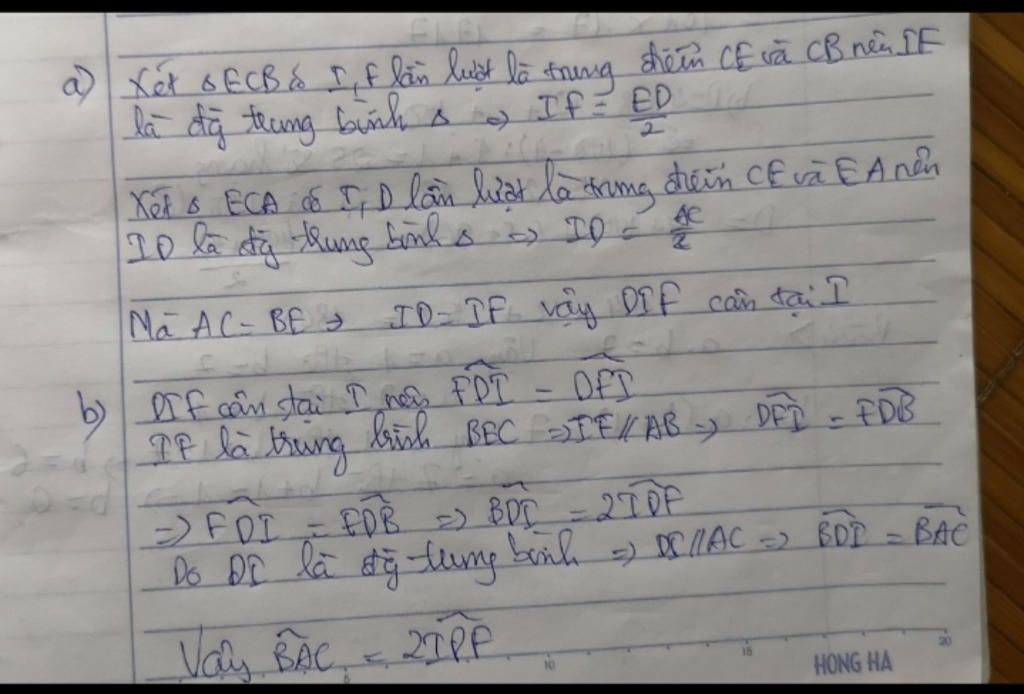 a) Xét Δ ECB có I, F lần lượt là trung điểm CE và CB nên IF
là đg trung bình Δ => IF = ED/2
Xét Δ ECA có I, D lần lượt là trung điểm CE và EA nên
ID là đg trung bình Δ => ID = AC/2
Mà AC = BE => ID = IF vậy DIF cân tại I
b) DIF cân tại I nên \widehat{FDI} = \widehat{DFI}
IF là trung bình BEC => IF // AB => \widehat{DFI} = \widehat{FDB}
=> \widehat{FDI} = \widehat{FDB} => \widehat{BDI} = 2\widehat{IDF}
Do DI là đg trung bình => DI // AC => \widehat{BDI} = \widehat{BAC}
Vậy \widehat{BAC} = 2\widehat{IDF}
5 10 15 20
HONG HA